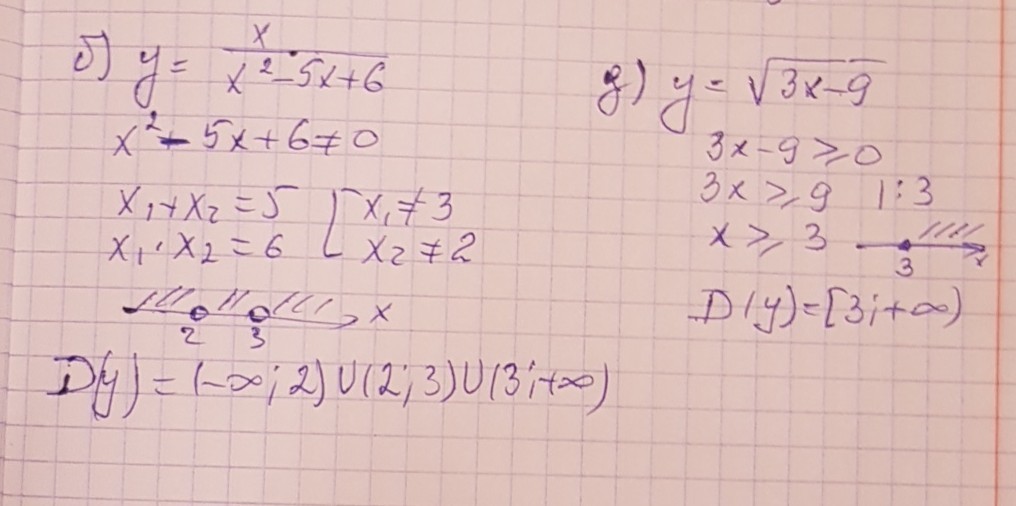 б) y = x / x² - 5x + 6
x² - 5x + 6 ≠ 0
x₁ + x₂ = 5 [ x₁ ≠ 3
x₁ · x₂ = 6 [ x₂ ≠ 2
2 3 x
D(y) = (-∞; 2) ∪ (2; 3) ∪ (3; +∞)
д) y = √(3x - 9)
3x - 9 ⩾ 0
3x ⩾ 9 | : 3
x ⩾ 3
3 x
D(y) = [3; +∞)